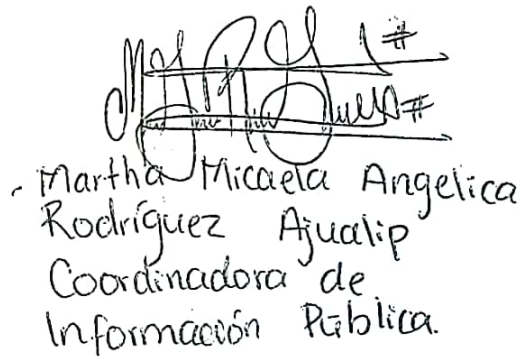 Martha Micaela Angelica
Rodríguez Ajualip
Coordinadora de
Información Pública.